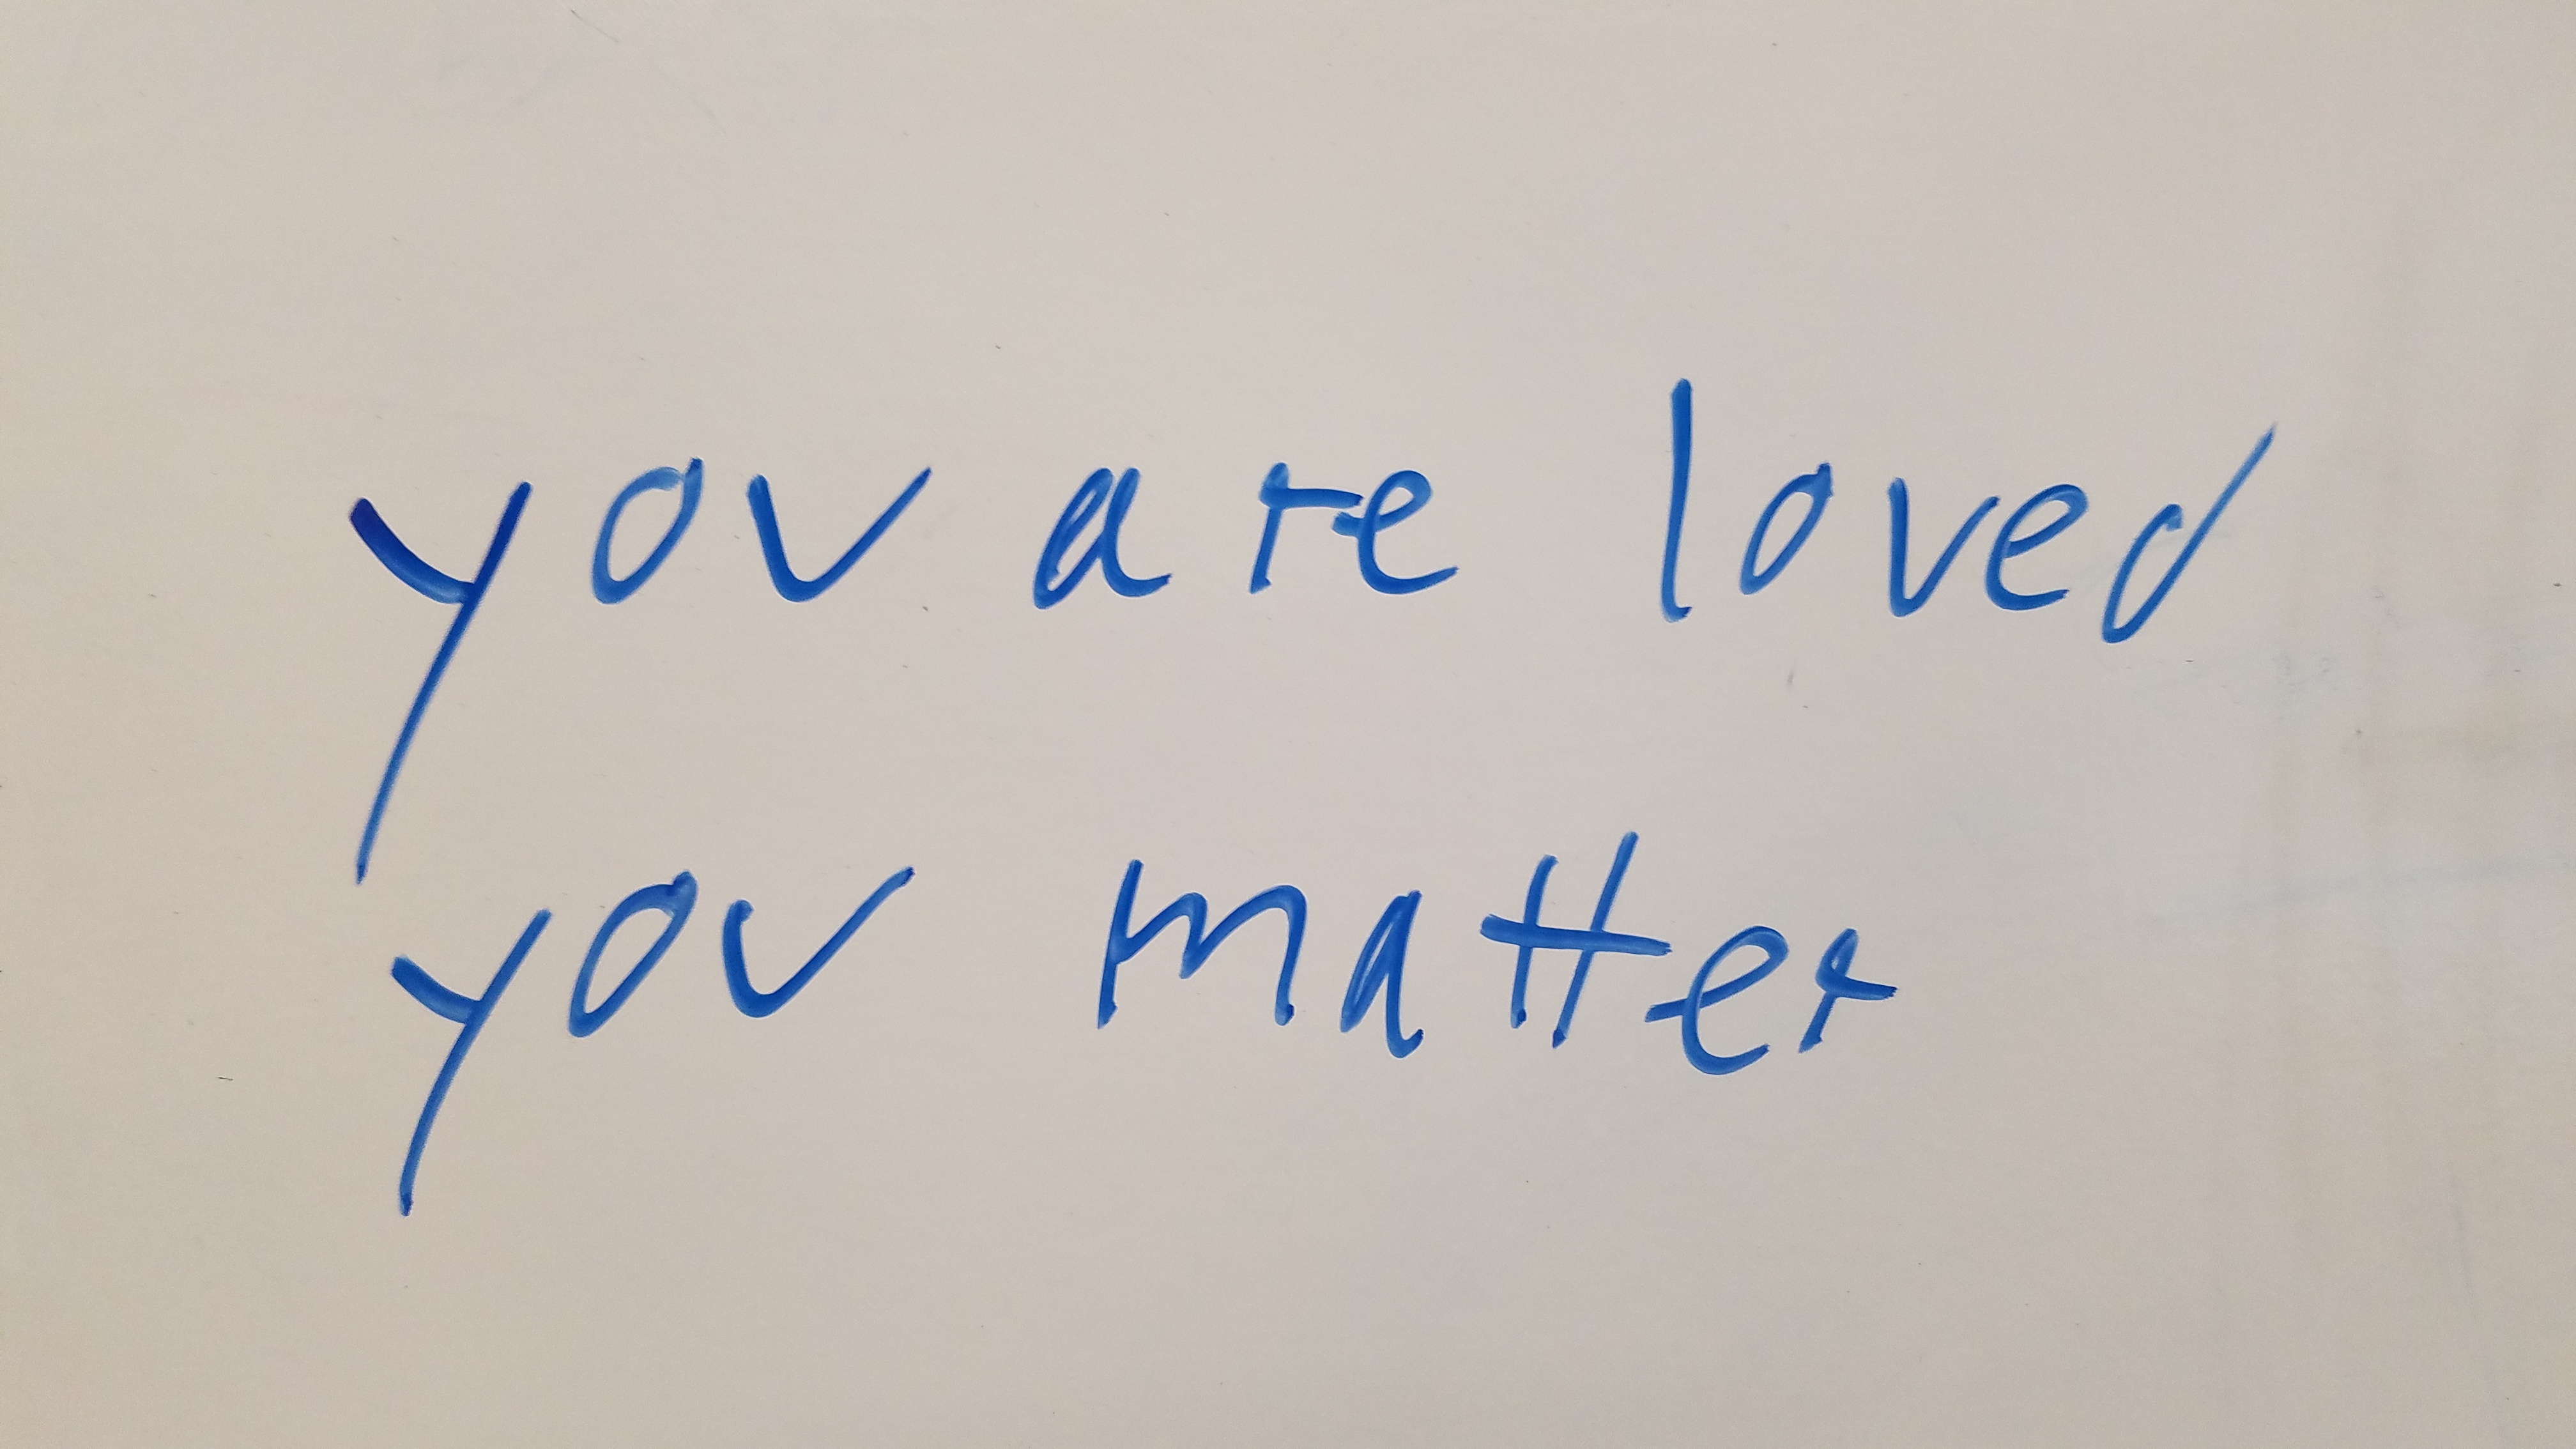 you are loved
you matter